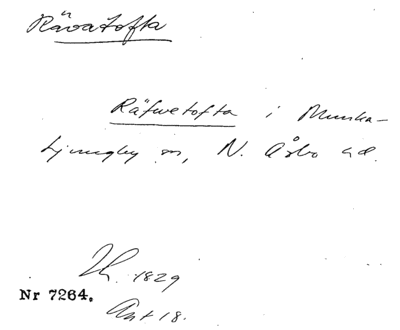 Rävatofta
Räfwetofta i Munka-
Ljungby sn, N. Åsbo hd.
Th. 1829
Nr 7264.
Ant 18.